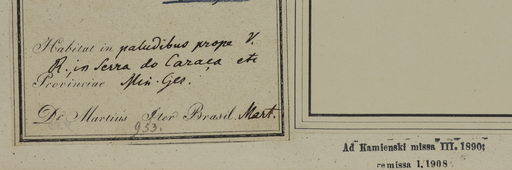 Habitat in paludibus prope V.
R. in Serra do Caraça etc
Provinciae Min. Ger.
Dr Martius Iter Brasil. Mart.
953.
Ad Kamienski missa III. 1890;
remissa I, 1908